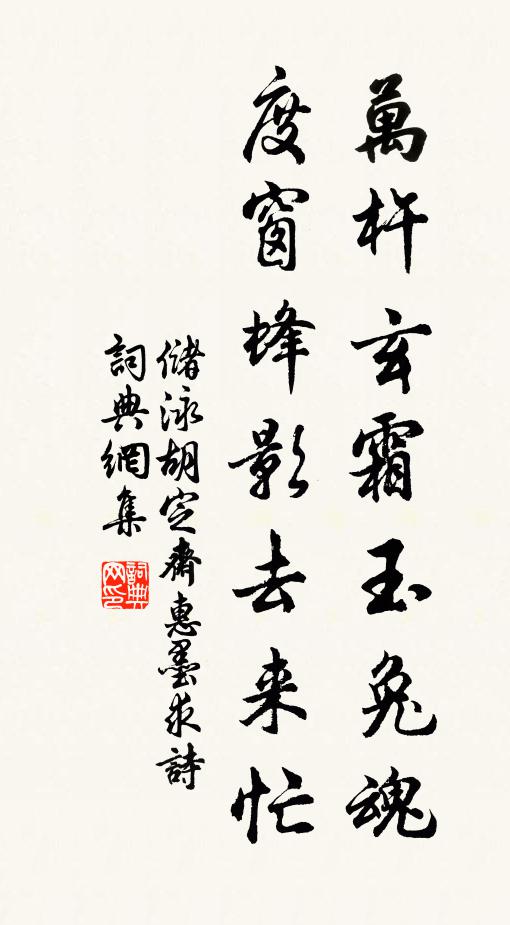 萬杵玄霜玉兔魂
度窗蜂影去来忙
儲泳胡定齋惠墨求詩
詞典網集
詞典网印